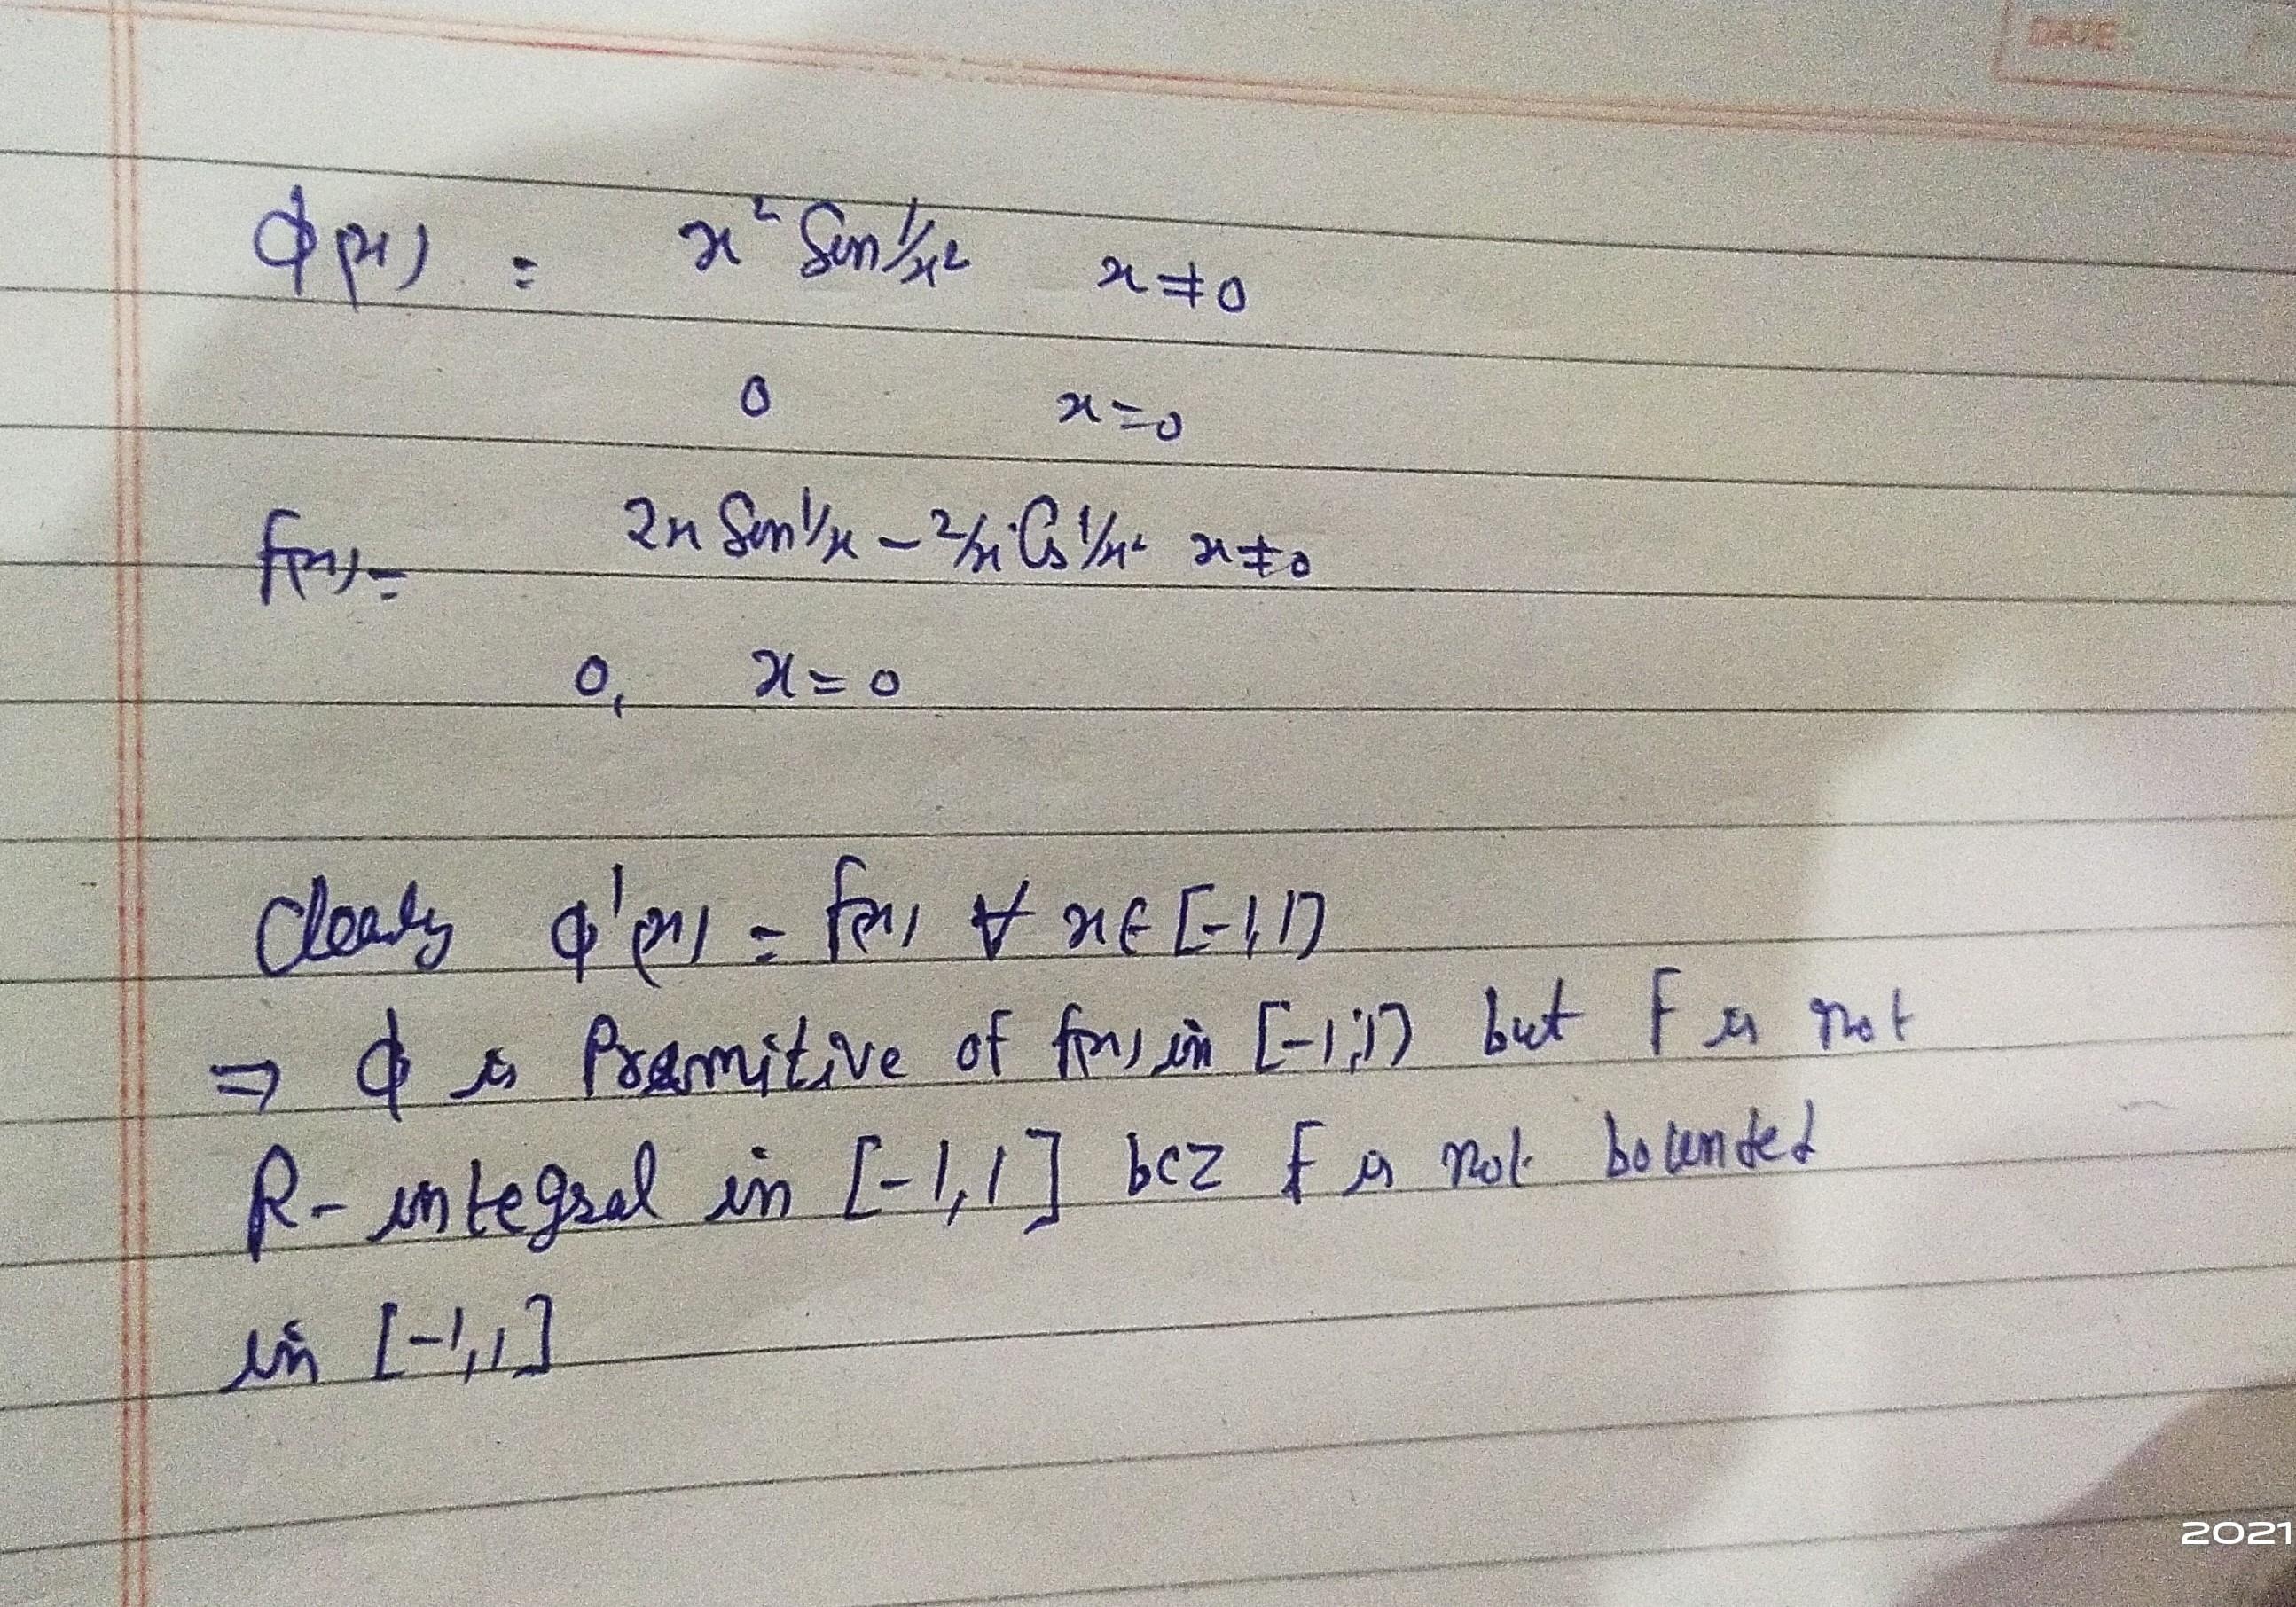 DATE:
ϕ(x) = x² Sin 1/x² x≠0
0 x=0
f(x)= 2x Sin 1/x - 2/x Cos 1/x² x≠0
0, x=0
Clearly ϕ'(x) = f(x) ∀ x∈[-1,1]
⇒ ϕ is Premitive of f(x) in [-1,1] but f is not
R-integral in [-1,1] bcz f is not bounded
in [-1,1]
2021